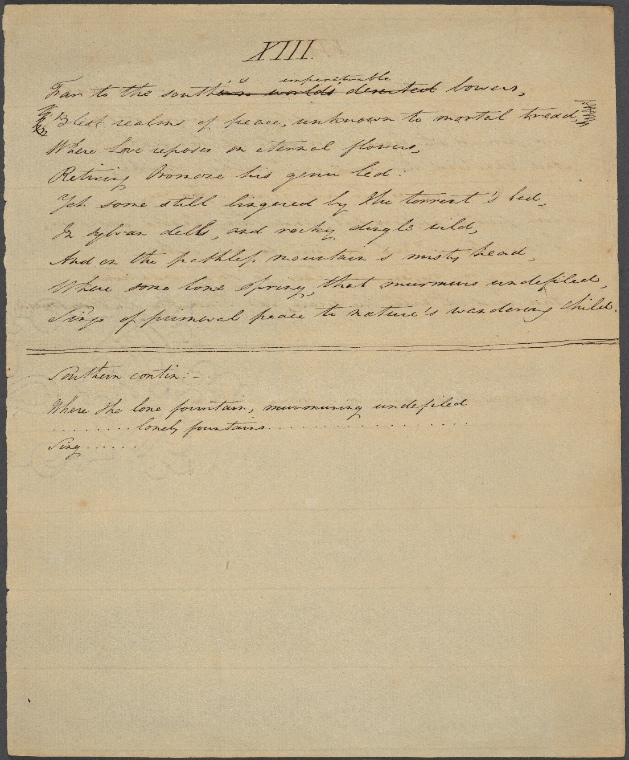 XIII.
's impenetrable
Far to the southern worlds deserted bowers,
Blest realms of peace, unknown to mortal tread,
Where Love reposes on eternal flowers,
Retiring his genii led:
Yet some still lingered by the torrent's bed,
In sylvan dells, and rocky dingle wild,
And on the pathless mountain's misty head,
Where some lone spring, that murmurs undefiled,
Sings of primeval peace to nature's wandering child.
Southern contin:-
Where the lone fountain, murmuring undefiled
........ lonely fountains ..................
Sing ......